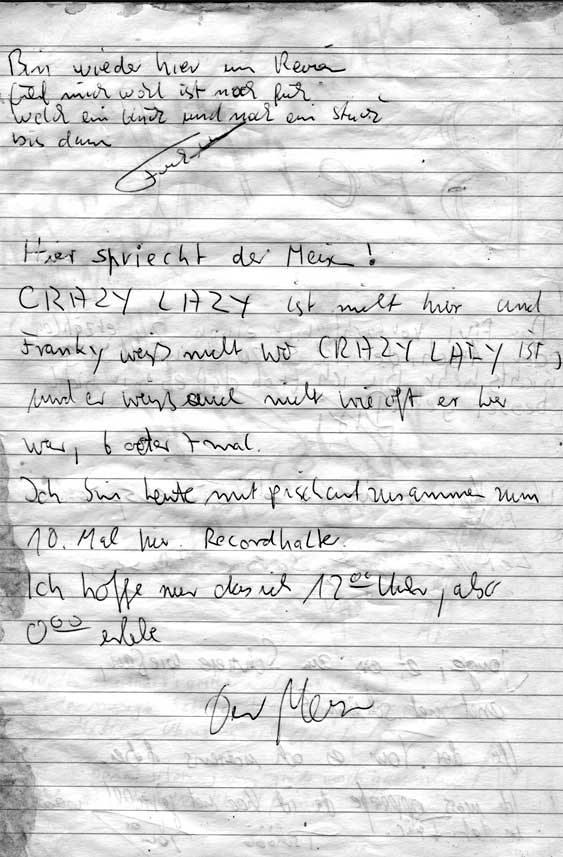 Bin wieder hier im Revier
mich wohl ist noch für
ein und noch ein Stück
bis dann
Hier spriecht der Meix!
CRAZY LAZY ist nicht hier und
Franky weiß nicht wo CRAZY LAZY ist,
und er weiß auch nicht wie oft er hier
war, 6 oder 7 mal.
Ich bin heute mit zusammen zum
10. Mal hier. Recordhalter.
Ich hoffe nur das ich 12⁰⁰ Uhr, also
0⁰⁰ erlebe
Der